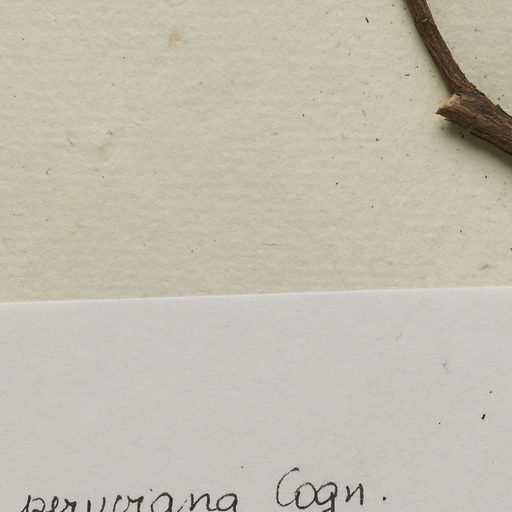 peruviana Cogn.